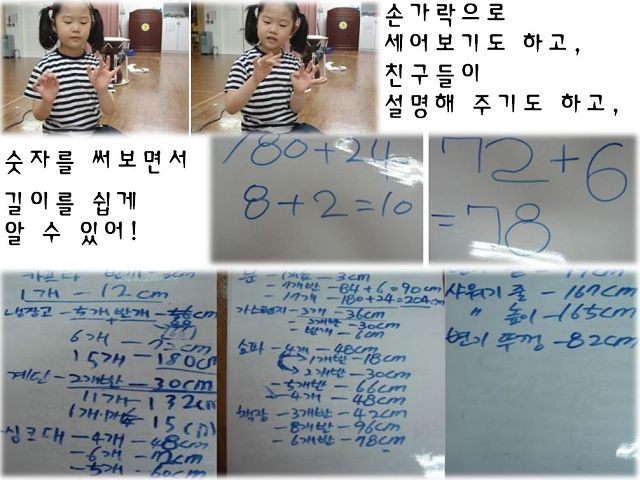 손가락으로
세어보기도 하고,
친구들이
설명해 주기도 하고,
숫자를 써보면서
길이를 쉽게
알 수 있어!
180+24
8+2=10
72+6
=78
1개 - 12cm
냉장고 - 5개반개
6개 - 72cm
15개 - 180cm
계단 - 2개반 - 30cm
11개 - 132cm
15cm
싱크대 - 4개 - 48cm
- 6개 - 72cm
- 5개 - 60cm
문 - - 3cm
- 7개반 - 84+6=90cm
- 17개 - 180+24=204cm
가스렌지 - 3개 - 36cm
- 2개반 - 30cm
- 반개 - 6cm
쇼파 - 4개 - 48cm
1개반 - 18cm
2개반 - 30cm
- 5개반 - 66cm
- 4개 - 48cm
책장 - 3개반 - 42cm
- 8개반 - 96cm
- 6개반 - 78cm
샤워기 줄 - 167cm
〃 높이 - 165cm
변기 뚜껑 - 82cm